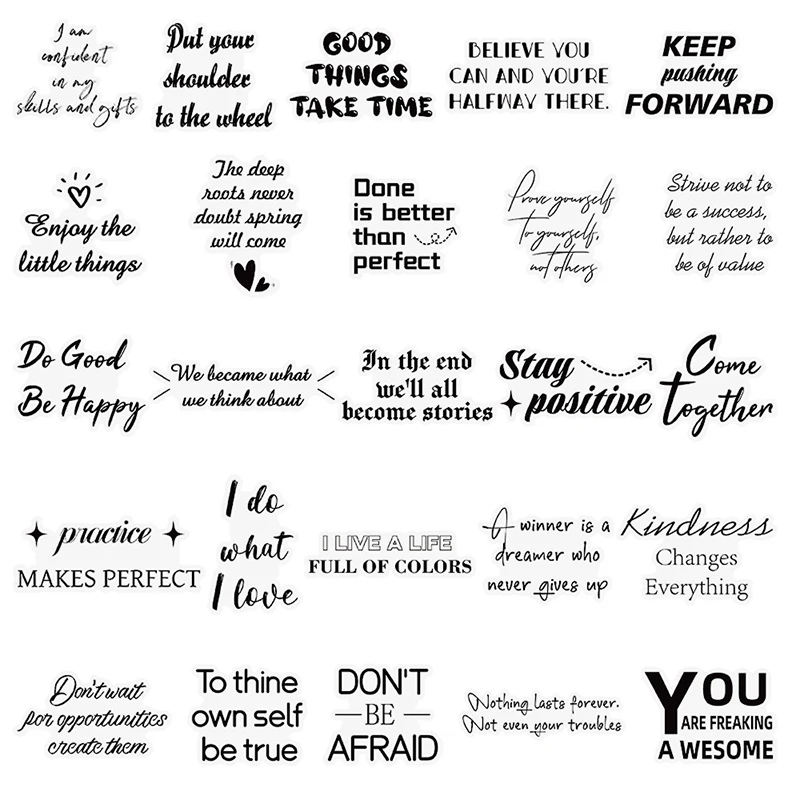 I am
confident
in my
skills and gifts
Put your
shoulder
to the wheel
GOOD
THINGS
TAKE TIME
BELIEVE YOU
CAN AND YOU'RE
HALFWAY THERE.
KEEP
pushing
FORWARD
Enjoy the
little things
The deep
roots never
doubt spring
will come
Done
is better
than
perfect
Prove yourself
to yourself,
not others
Strive not to
be a success,
but rather to
be of value
Do Good
Be Happy
We became what
we think about
In the end
we'll all
become stories
Stay
positive
Come
together
practice
MAKES PERFECT
I do
what
I love
I LIVE A LIFE
FULL OF COLORS
A winner is a
dreamer who
never gives up
Kindness
Changes
Everything
Don't wait
for opportunities
create them
To thine
own self
be true
DON'T
BE
AFRAID
Nothing lasts forever.
Not even your troubles
YOU
ARE FREAKING
A WESOME